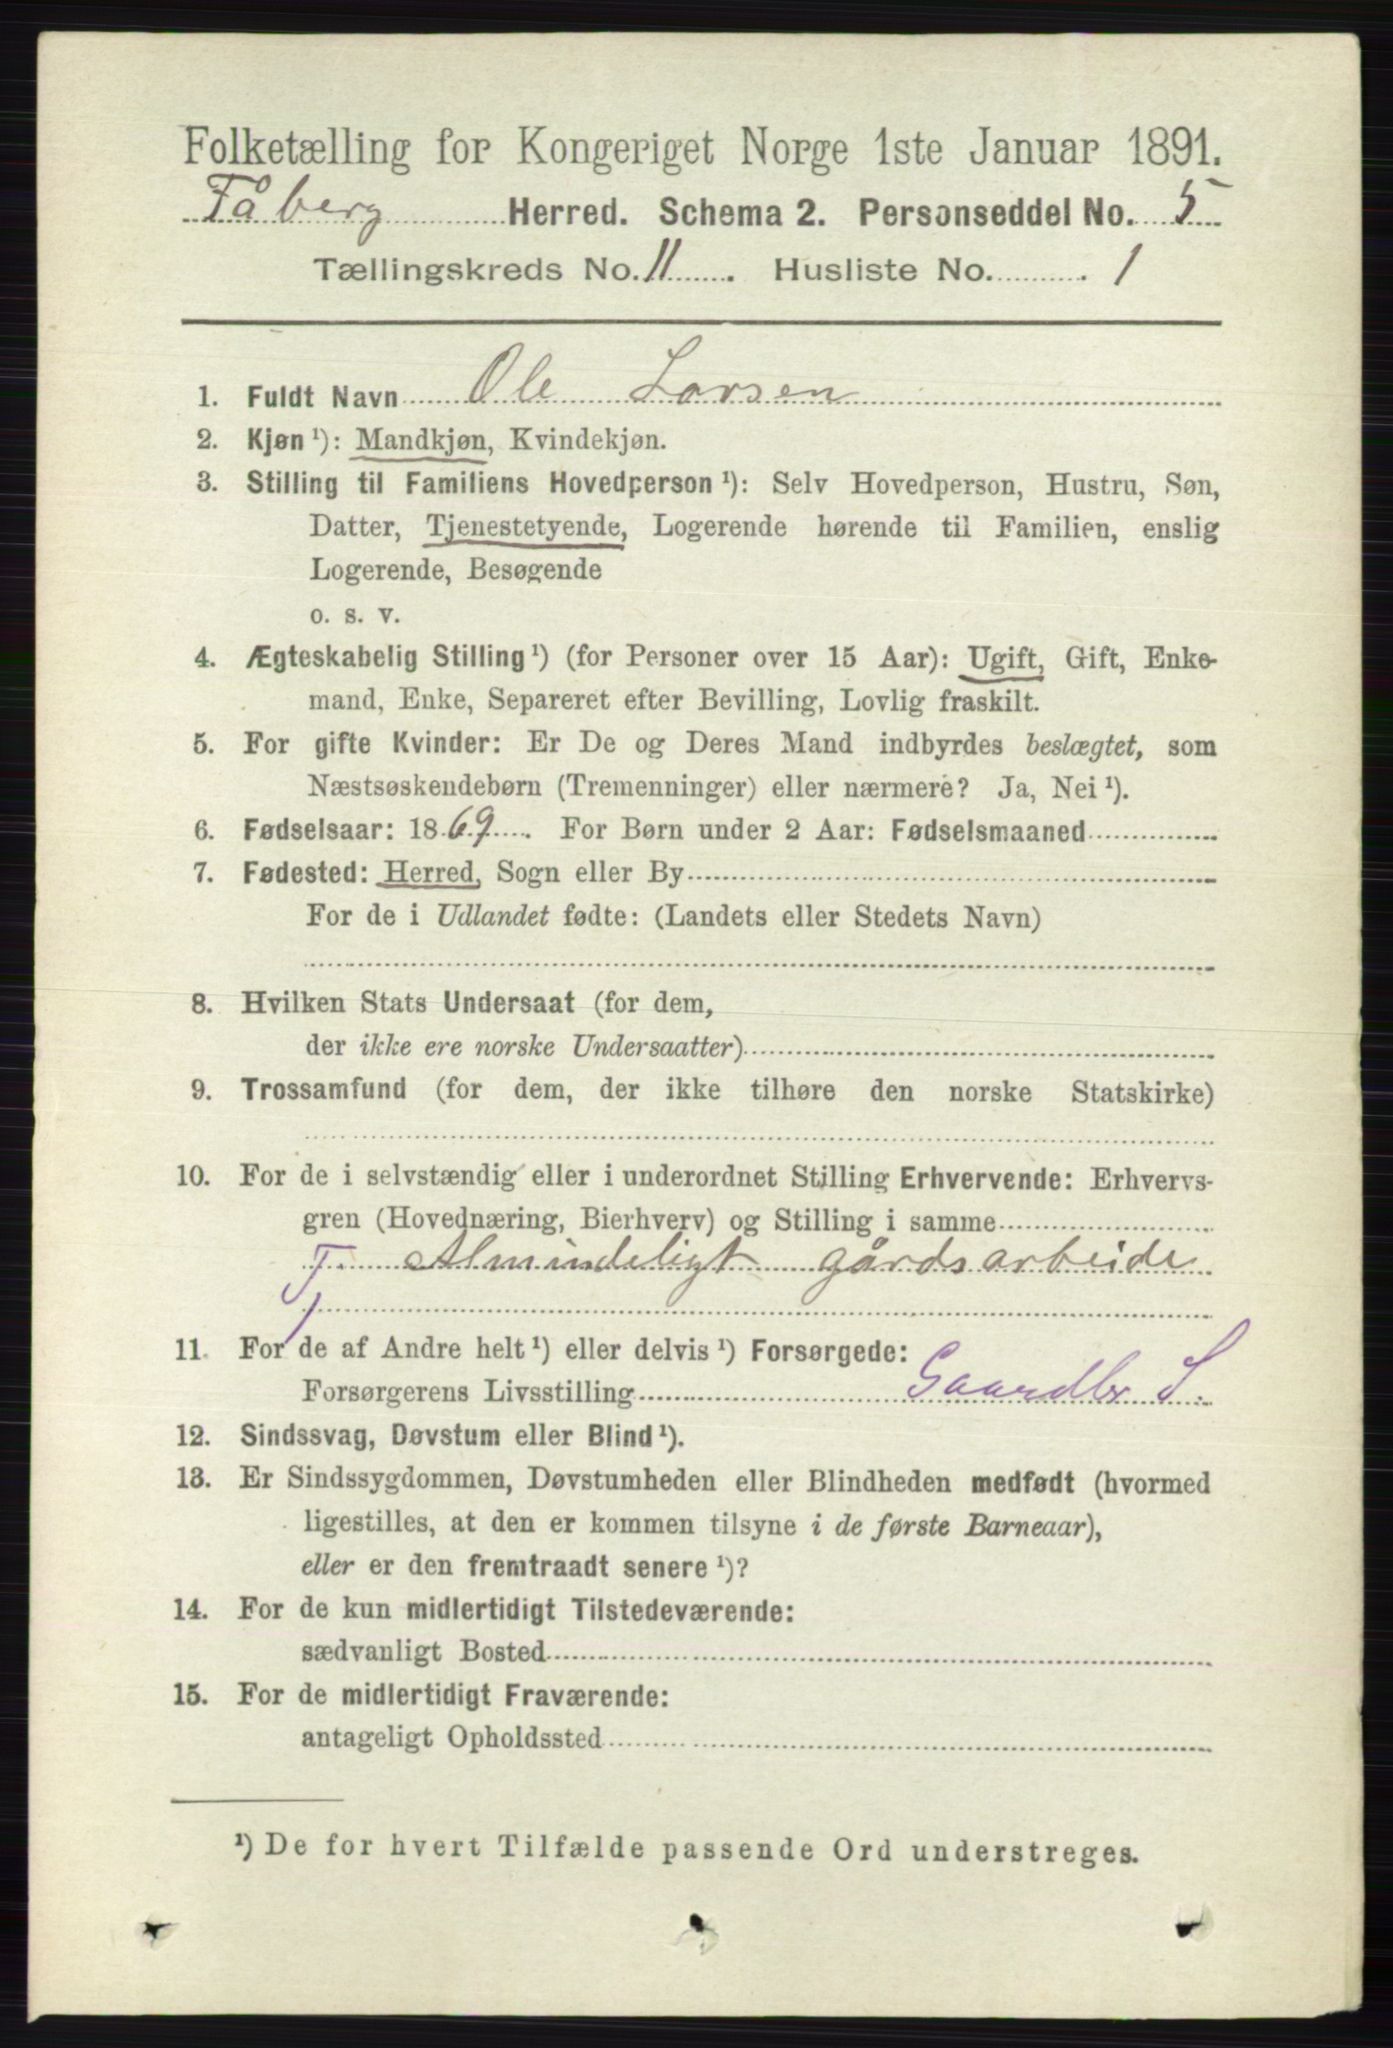 Folketælling for Kongeriget Norge 1ste Januar 1891.
Fåberg Herred. Schema 2. Personseddel No. 5
Tællingskreds No. 11. Husliste No. 1
1. Fuldt Navn Ole Larsen
2. Kjøn ¹): Mandkjøn, Kvindekjøn.
3. Stilling til Familiens Hovedperson ¹): Selv Hovedperson, Hustru, Søn,
Datter, Tjenestetyende, Logerende hørende til Familien, enslig
Logerende, Besøgende
o. s. v.
4. Ægteskabelig Stilling ¹) (for Personer over 15 Aar): Ugift, Gift, Enke-
mand, Enke, Separeret efter Bevilling, Lovlig fraskilt.
5. For gifte Kvinder: Er De og Deres Mand indbyrdes beslægtet, som
Næstsøskendebørn (Tremenninger) eller nærmere? Ja, Nei ¹).
6. Fødselsaar: 1869. For Børn under 2 Aar: Fødselsmaaned
7. Fødested: Herred, Sogn eller By
For de i Udlandet fødte: (Landets eller Stedets Navn)
8. Hvilken Stats Undersaat (for dem,
der ikke ere norske Undersaatter)
9. Trossamfund (for dem, der ikke tilhøre den norske Statskirke)
10. For de i selvstændig eller i underordnet Stilling Erhvervende: Erhvervs-
gren (Hovednæring, Bierhverv) og Stilling i samme
T. Almindeligt gårdsarbeide
11. For de af Andre helt ¹) eller delvis ¹) Forsørgede:
Forsørgerens Livsstilling Gaardbr S.
12. Sindssvag, Døvstum eller Blind ¹).
13. Er Sindssygdommen, Døvstumheden eller Blindheden medfødt (hvormed
ligestilles, at den er kommen tilsyne i de første Barneaar),
eller er den fremtraadt senere ¹)?
14. For de kun midlertidigt Tilstedeværende:
sædvanligt Bosted
15. For de midlertidigt Fraværende:
antageligt Opholdssted
¹) De for hvert Tilfælde passende Ord understreges.